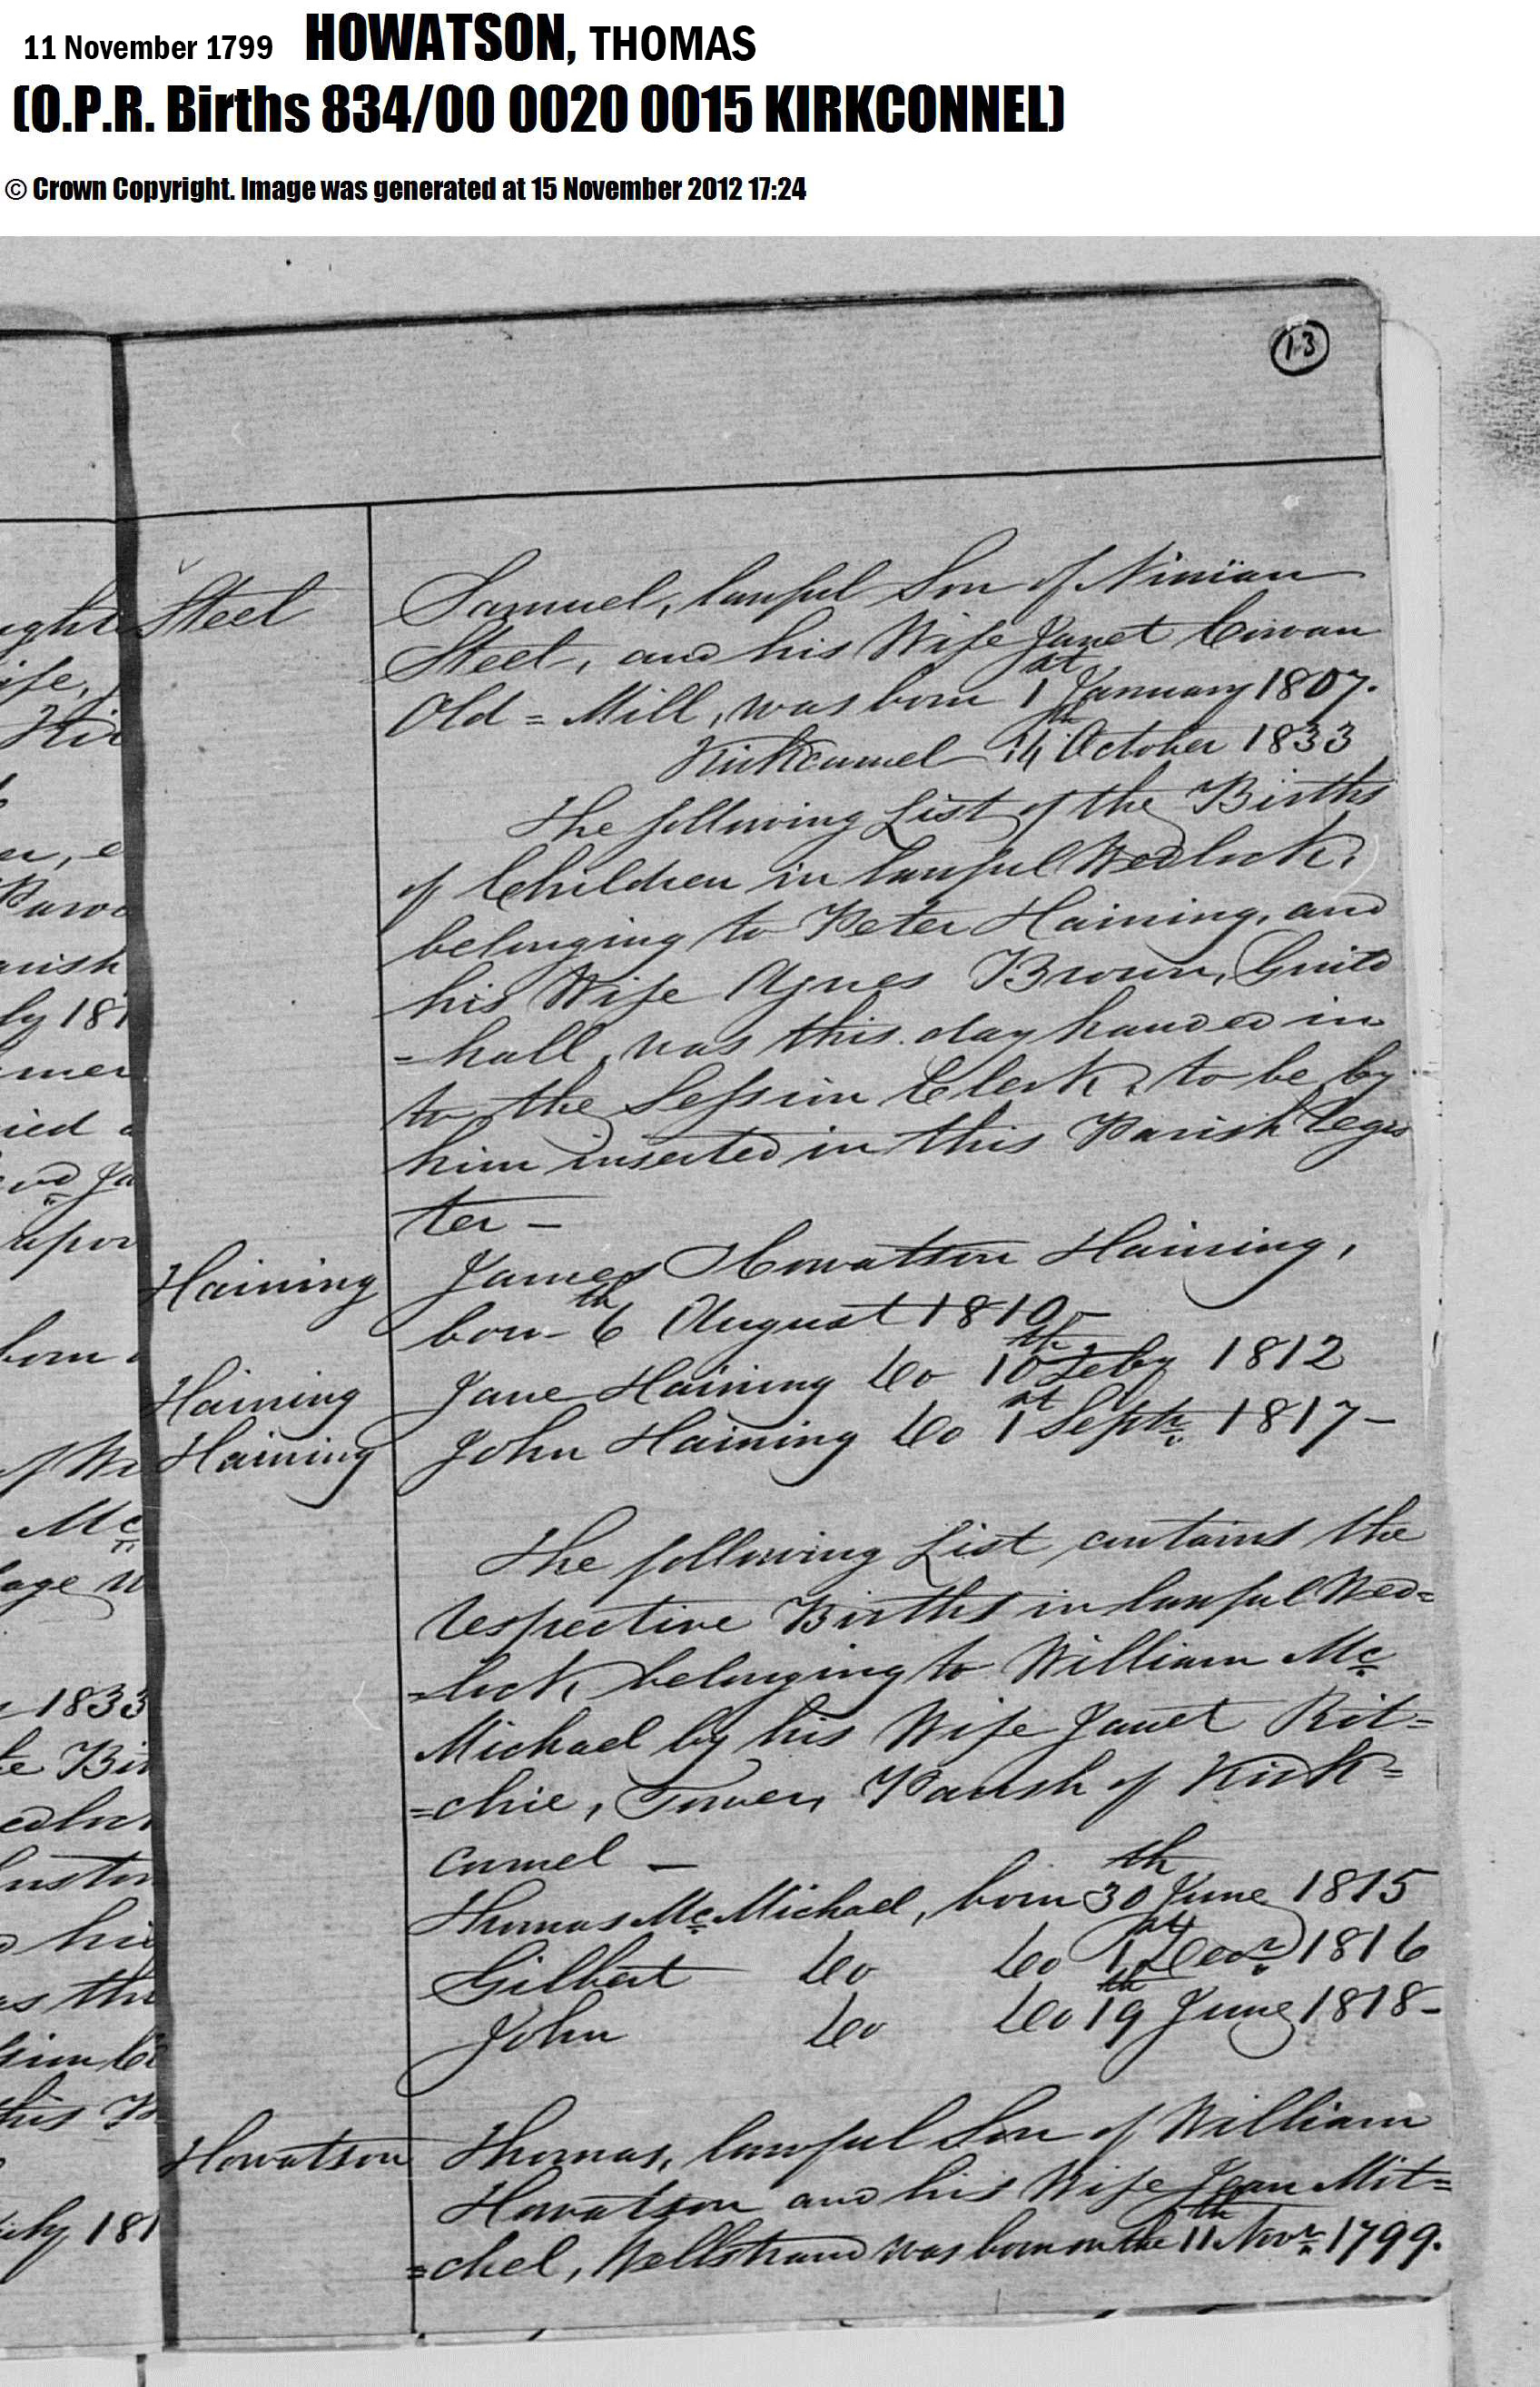 11 November 1799 HOWATSON, THOMAS
(O.P.R. Births 834/00 0020 0015 KIRKCONNEL)
© Crown Copyright. Image was generated at 15 November 2012 17:24
13
Steel
Samuel, lawful Son of Ninian
Steel, and his Wife Janet Cowan
Old = Mill, was born 1st January 1807.
Kirkconnel 14th October 1833
The following List of the Births
of Children in lawful Wedlock,
belonging to Peter Haining, and
his Wife Agnes Brown, Guild
=hall, was this day handed in
to the Session Clerk, to be by
him inserted in this Parish Regis
ter –
Haining James Howatson Haining,
born 6th August 1810 –
Haining Jane Haining Do 10th Feby 1812
Haining John Haining Do 1st Septr. 1817 –
The following List contains the
respective Births in lawful Wed=
=lock, belonging to William Mc
Michael by his Wife Janet Rit=
=chie, Tower, Parish of Kirk=
connel –
Thomas Mc Michael, born 30th June 1815
Gilbert Do Do 1st Decr. 1816
John Do Do 19th June 1818 –
Howatson Thomas, lawful Son of William
Howatson and his Wife Jean Mit=
=chel, Wellstrand was born on the 11th Novr. 1799.
ife,
er, e
arish
ly 181
ied
upon
born
Mc
1833
Bir
his
as the
this
181